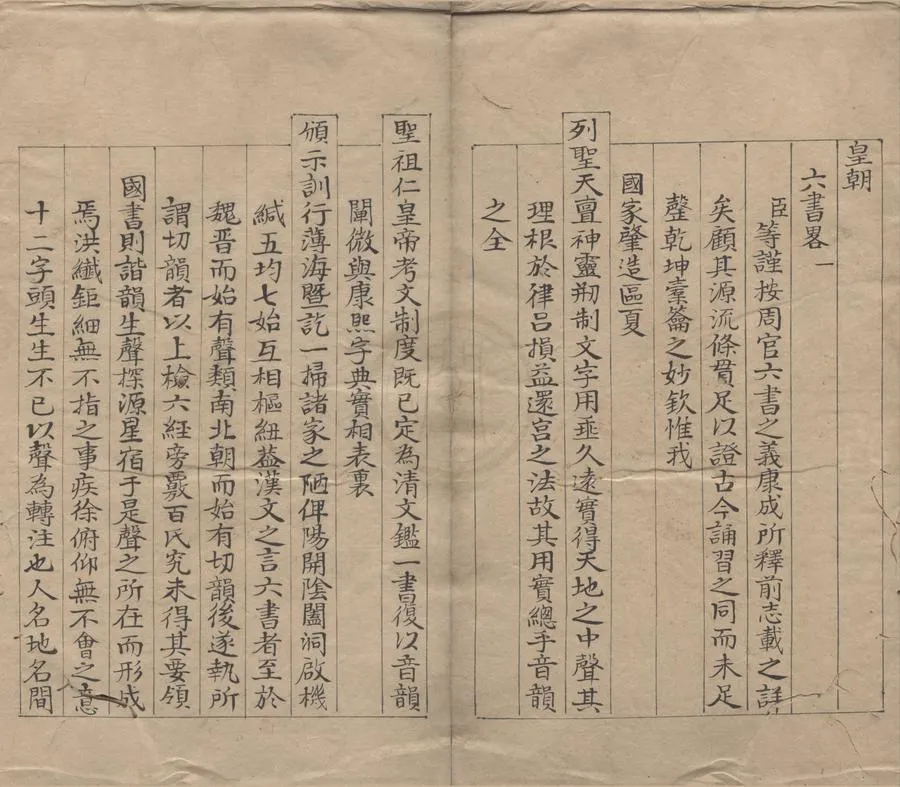 皇朝
六書畧一
臣等謹按周官六書之義康成所釋前志載之詳
矣顧其源流條貫足以證古今誦習之同而未足
罄乾坤橐籥之妙欽惟我
國家肇造區夏
列聖天亶神靈刱制文字用垂久遠實得天地之中聲其
理根於律呂損益還宮之法故其用實總乎音韻
之全
聖祖仁皇帝考文制度既已定為清文鑑一書復以音韻
闡微與康熙字典實相表裏
頒示訓行薄海暨訖一掃諸家之陋俾陽開陰闔洞啟機
緘五均七始互相樞紐葢漢文之言六書者至於
魏晋而始有聲類南北朝而始有切韻後遂執所
謂切韻者以上檢六經旁覈百氏究未得其要領
國書則諧韻生聲探源星宿于是聲之所在而形成
焉洪纖鉅細無不指之事疾徐俯仰無不會之意
十二字頭生生不已以聲為轉注也人名地名間